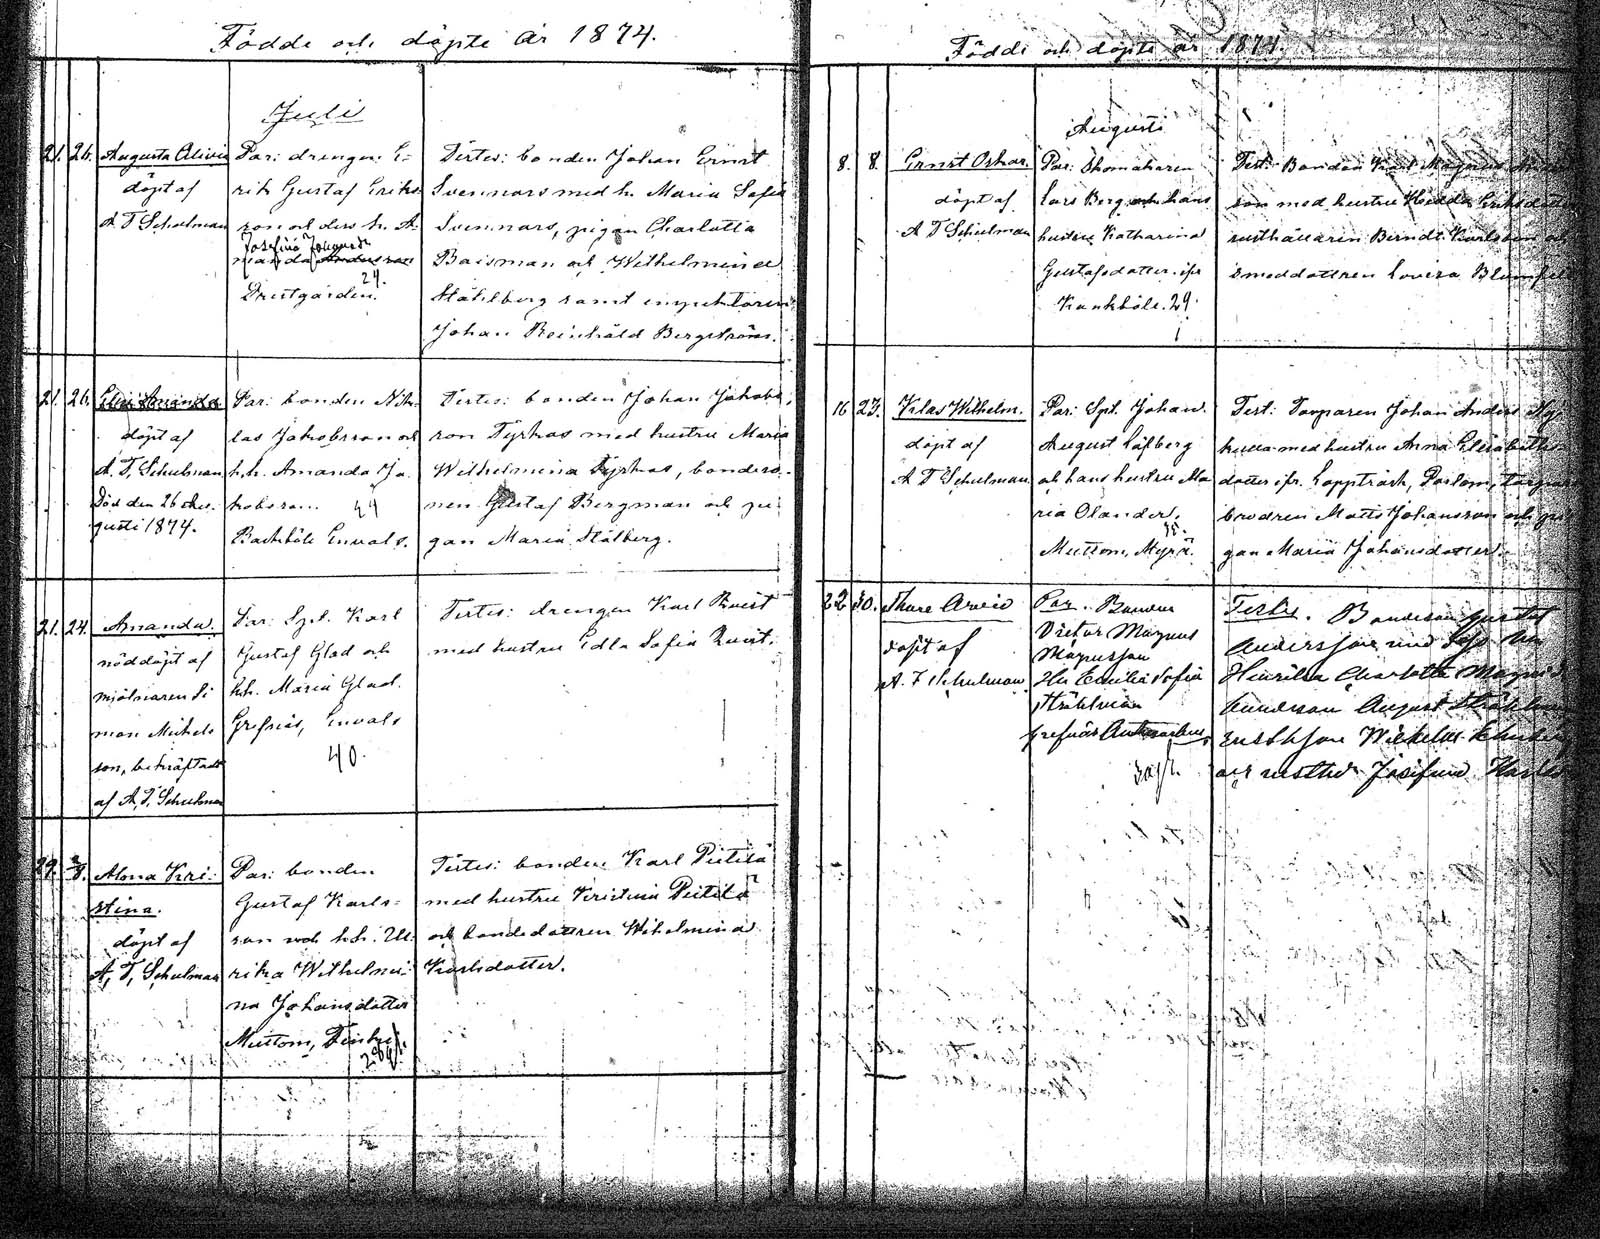 Födde och döpte år 1874.
Juli
21. 26. Augusta Olivia
döpt af
A T Schulman
Par: drengen E-
rik Gustaf Eriks
son och dess h. A-
Josefina Johansdr
manda Andersson
24.
Drestgården.
Testes: bonden Johan Ernst
Svennars med h. Maria Sofia
Svennars, pigan Charlotta
Baisman och Wilhelmina
Ståhlberg samt inspektoren
Johan Reinhold Bergström.
21. 26. Elin Amanda
döpt af
A. T. Schulman
Död den 26 Au-
gusti 1874.
Par: bonden Nik-
las Jakobsson och
h.h. Amanda Ja-
kobsson. 24
Backböle Envals.
Testes: bonden Johan Jakobs-
son Tyskas med hustru Maria
Wilhelmina Tyskas, bondeso-
nen Gustaf Bergman och pi-
gan Maria Stålberg.
21. 24. Amanda.
nöddöpt af
mjölnaren Si
mon Michels
son, bekräftadt
af A. T. Schulman
Par: Spl. Karl
Gustaf Glad och
h.h. Maria Glad.
Grefnäs, Envals
40.
Testes: drengen Karl Kvist
med hustru Edla Sofia Kvist.
29. 2/8. Alma Kri-
stina.
döpt af
A. T. Schulman
Par: bonden
Gustaf Karls-
son och h.h. Ul-
rika Wilhelmi-
na Johansdotter
Muttom,
Testes: bonden Karl Pietilä
med hustru Kristina Pietilä
och bondedottren Wilhelmina
Karlsdotter.
Födde och döpte år 1874.
Augusti
8. 8. Ernst Oskar.
döpt af
A T Schulman
Par: Skomakaren
Lars Berg och hans
hustru Katharina
Gustafsdotter ifr
Kankböle. 29.
Test: Bonden Karl Magnus
son med hustru Hedda Eriksdotter
rusthållaren Berndt Karlsson och
smeddottren Lovisa
16 23. Klas Wilhelm.
döpt af
A T Schulman
Par: Spl. Johan
August Löfberg
och hans hustru Ma
ria Olander.
35.
Muttom, Myrä.
Test: Torparen Johan Anders
med hustru Anna Elisabeths-
dotter ifr. Lappträsk, Torpare
brodren Matts Johansson och pi
gan Maria Johansdotter.
22 30. Thure Arvid
döpt af
A. T Schulman
Par. Bonden
Victor Magnus
Magnusson
Hu Emilia Sofia
Ståhlman
Grefnäs
Testes. Bondeson Gustaf
Andersson med
Henrika Charlotta
bondeson August Ståhlman
Wilhelm
och Josefina